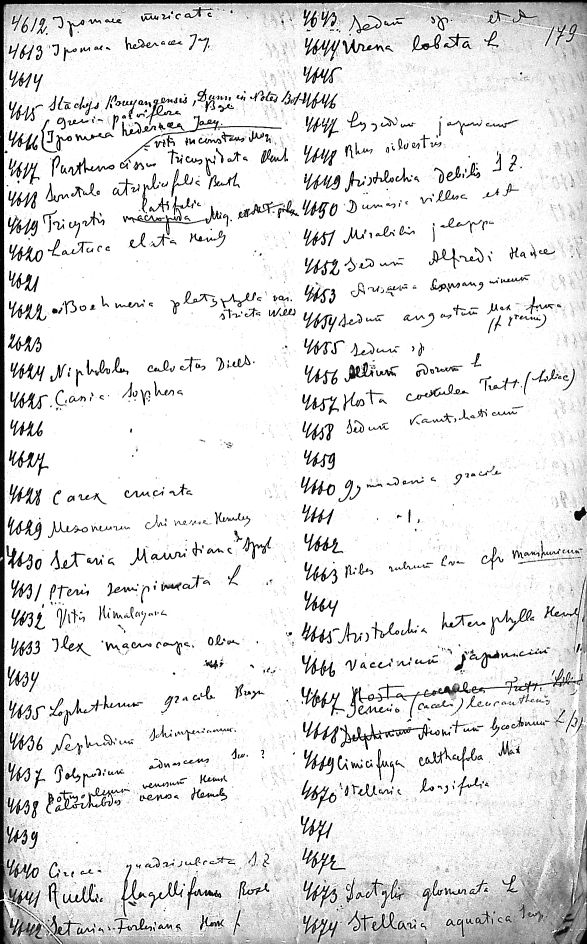 4612. Ipomaea muricata
4613 Ipomaea hederacea Jq
4614
4615 Stachys Kouyangensis, Dunn in Notes Bot
grewia parviflora Bge
4616 Ipomaea hederacea Jacq
vitis inconstans Miq
4617 Parthenocissus tricuspidata
4618 atriplicifolia Benth
latifolia
4619 Tricyrtis macropoda Miq.
4620 Lactuca elata Hemsl
4621
4622 Boehmeria platyphylla var.
stricta
2023
4624 Niphobolus calvatus Diels.
4625. Cassia Sophera
4626
4627
4628 Carex cruciata
4629 Mezoneurum chinense Hemsley
4630 Setaria Mauritiana Spgl
4631 Pteris semipinnata L
4632 Vitis Himalayana
4633 Ilex macrocarpa Oliv
4634
4635 Lophatherum gracile Brogn
4636 Nephrodium Schimperianum
4637 Polypodium adnascens Sw. ?
venosum Hemsl
4638 venosa Hemsley
4639
4640 Circaea quadrisulcata S. Z
4641 Ruellia flagelliformis Roxb
4642 Setaria Forbesiana Hook f
179
4643 Sedum sp.
4644 Urena lobata L
4645
4646
4647 Lygodium japonicum
4648 Rhus silvestris
4649 Aristolochia debilis S Z.
4650 Dumasia villosa
4651 Mirabilis jalappa
4652 Sedum Alfredi Hance
4653 Arisaema consanguineum
4654 Sedum angustum Max
4655 Sedum sp
4656 Allium odorum L
4657 Hosta coerulea Tratt. (Liliac)
4658 Sedum Kamtschaticum
4659
4660 gymnadenia gracile
4661
4662
4663 Ribes rubrum Lin cfr manshuricum
4664
4665 Aristolochia heterophylla Hemsl
4666 Vaccinium japonicum
4667 Hosta coerulea Tratt. Liliac
Senecio (Cacali) leucanthemus
4668 Delphinium Aconitum Lycoctonum L
4669 Cimicifuga calthafolia Max
4670 Stellaria longifolia
4671
4672
4673 Dactylis glomerata L
4674 Stellaria aquatica Scop